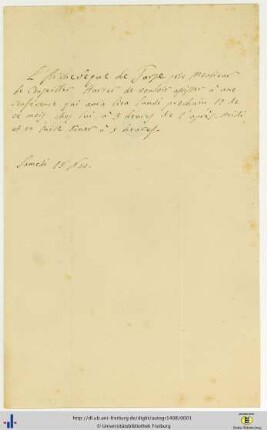 L'archevêque de Tarse prie Monsieur
le Conseiller Harter de vouloir assister à une
Conférence qui aura lieu lundi prochain 17 de
ce mois, chez lui à 3 heures de l'après midi,
et ensuite diner à 5 heures.
Samedi 15
http://dl.ub.uni-freiburg.de/diglit/autogr1408/0001
© Universitätsbibliothek Freiburg